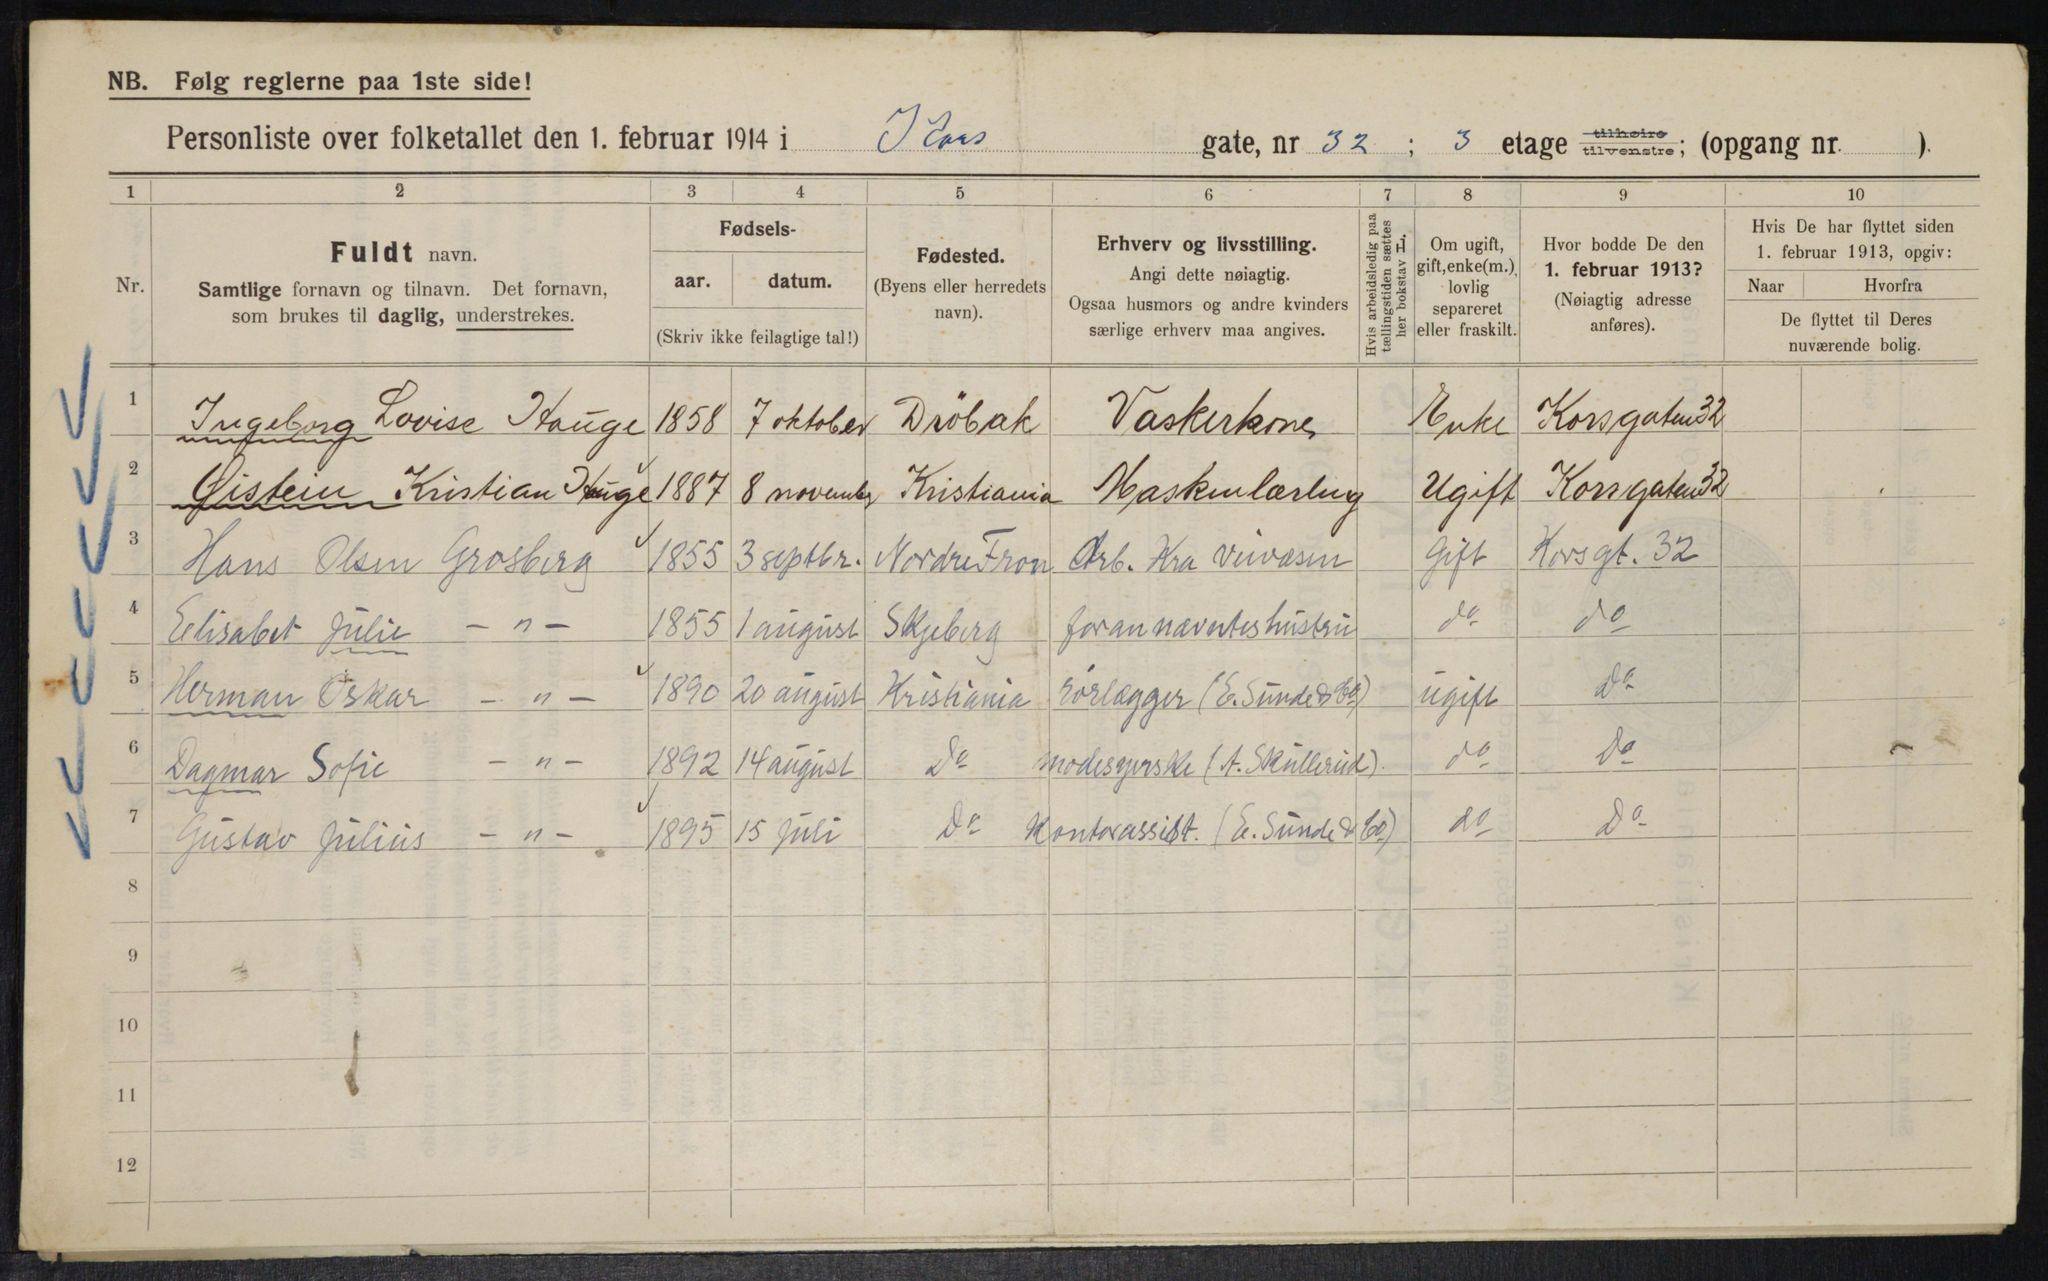 NB. Følg reglerne paa 1ste side!
Personliste over folketallet den 1. februar 1914 i Kors gate, nr 32 ; 3 etage tilhøire tilvenstre; (opgang nr. ).
1 2 3 4 5 6 7 8 9 10
Nr.
Fuldt navn.
Samtlige fornavn og tilnavn. Det fornavn,
som brukes til daglig, understrekes.
Fødsels-
aar. datum.
(Skriv ikke feilagtige tal!)
Fødested.
(Byens eller herredets
navn).
Erhverv og livsstilling.
Angi dette nøiagtig.
Ogsaa husmors og andre kvinders
særlige erhverv maa angives.
Hvis arbeidsledig paa
tællingstiden sættes
her bokstav L.
Om ugift,
gift, enke(m.),
lovlig
separeret
eller fraskilt.
Hvor bodde De den
1. februar 1913?
(Nøiagtig adresse
anføres).
Hvis De har flyttet siden
1. februar 1913, opgiv:
Naar Hvorfra
De flyttet til Deres
nuværende bolig.
1 Ingeborg Lovise Hauge 1858 7 oktober Dröbak Vaskerkone Enke Korsgaten 32
2 Øistein Kristian Hauge 1887 8 november Kristiania Maskinlærling Ugift Korsgaten 32
3 Hans Olsen Grosberg 1855 3 septbr. Nordre Fron Arb. Kra veivæsen Gift Korsgt. 32
4 Elisabet Julie — „ — 1855 1 august Skjeberg forannævntes hustru do do
5 Herman Oskar — „ — 1890 20 august Kristiania rørlægger (E. Sunde & Co) ugift Do
6 Dagmar Sofie — „ — 1892 14 august Do modesyerske (A. Skullerud). do Do
7 Gustav Julius — „ — 1895 15 juli Do Kontorassist. (E. Sunde & Co) do Do
8
9
10
11
12